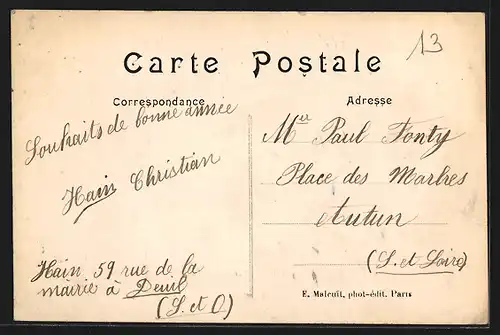 13
Carte Postale
Correspondance
Adresse
Souhaits de bonne année
Hain Christian
Hain 59 rue de la
mairie à Deuil
(S. et O)
Paul Fonty
Place des Marbres
Autun
(S. et Loire)
E. Malcuit, phot-édit. Paris